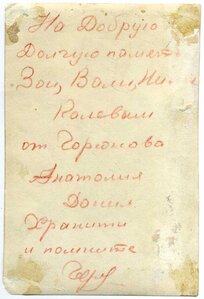 На Добрую
Долгую памят
Зои, Вали,
Колевым
от Горюнова
Анатолия
Дочил
Хранити
и помните